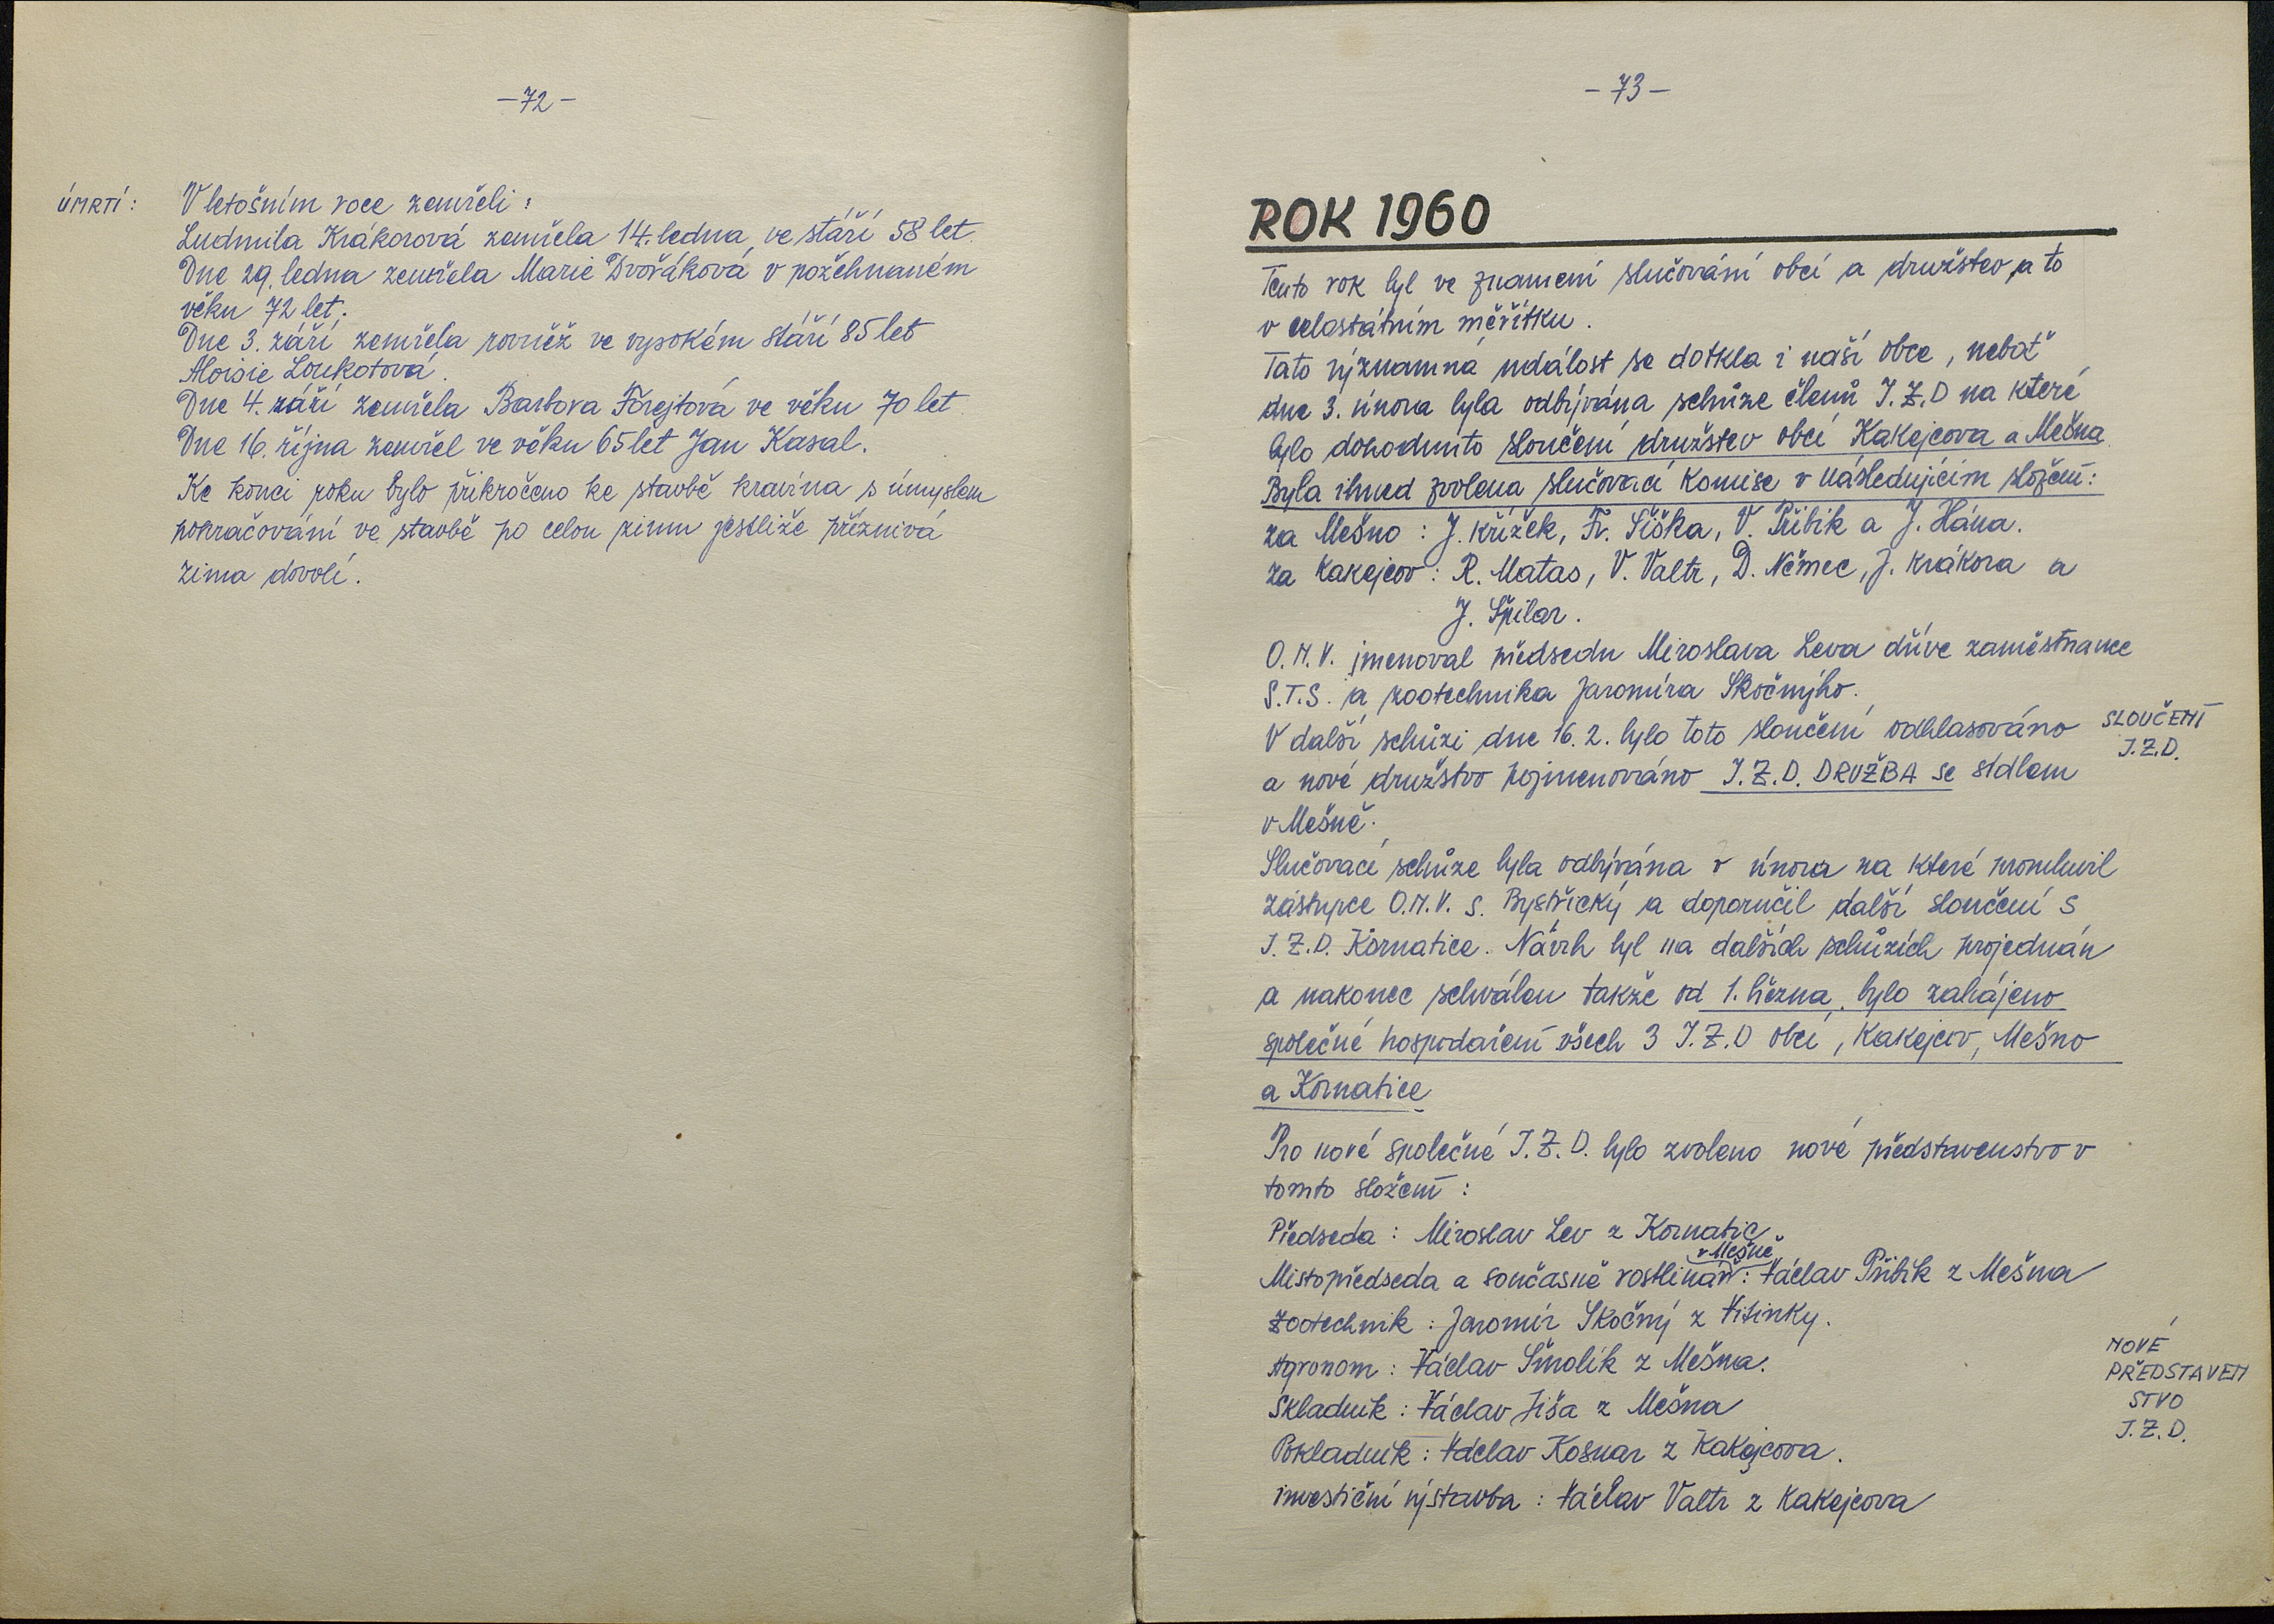 -72-
ÚMRTÍ:
V letošním roce zemřeli:
Ludmila Krákorová zemřela 14. ledna, ve stáří 58 let.
Dne 29. ledna zemřela Marie Dvořáková v požehnaném
věku 72 let.
Dne 3. září zemřela rovněž ve vysokém stáří 85 let
Aloisie Loukotová.
Dne 4. září zemřela Barbora Forejtová ve věku 70 let.
Dne 16. října zemřel ve věku 65 let Jan Kasal.
Ke konci roku bylo přikročeno ke stavbě kravína s úmyslem
pokračování ve stavbě po celou zimu jestliže příznivá
zima dovolí.
-73-
ROK 1960
Tento rok byl ve znamení slučování obcí a družstev, a to
v celostátním měřítku.
Tato významná událost se dotkla i naší obce, neboť
dne 3. února byla odbývána schůze členů J.Z.D na které
bylo dohodnuto sloučení družstev obcí Kakejcova a Mešna.
Byla ihned zvolena slučovací komise v následujícím složení:
za Mešno: J. Křížek, Fr. Šiška, V. Přibík a J. Hána.
za Kakejcov: R. Matas, V. Valtr, D. Němec, J. Krákora a
J. Špilar.
O.N.V. jmenoval předsedu Miroslava Leva dříve zaměstnance
S.T.S. a zootechnika Jaromíra Skočnýho.
V další schůzi dne 16. 2. bylo toto sloučení odhlasováno
a nové družstvo pojmenováno J.Z.D. DRUŽBA se sídlem
v Mešně.
SLOUČENÍ
J.Z.D.
Slučovací schůze byla odbývána v února na které promluvil
zástupce O.N.V. s. Bystřický a doporučil další sloučení s
J.Z.D. Kornatice. Návrh byl na dalších schůzích projednán
a nakonec schválen takže od 1. března bylo zahájeno
společné hospodaření všech 3 J.Z.D obcí, Kakejcov, Mešno
a Kornatice
Pro nové společné J.Z.D. bylo zvoleno nové představenstvo v
tomto složení:
Předseda: Miroslav Lev z Kornatic.
v Mešně
Místopředseda a současně rostlinář: Václav Přibík z Mešna
Zootechnik: Jaromír Skočný z Vitinky.
Agronom: Václav Smolík z Mešna.
Skladník: Václav Jiša z Mešna
Pokladník: Václav Kosnar z Kakejcova.
investiční výstavba: Václav Valtr z Kakejcova
NOVÉ
PŘEDSTAVEN
STVO
J.Z.D.